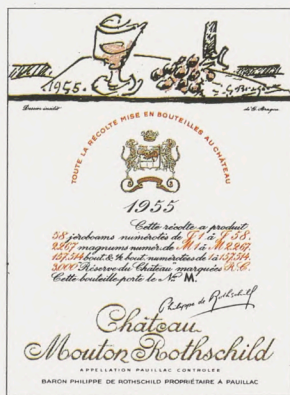 1955.
G. Braque
Dessin inédit
de G. Braque
TOUTE LA RÉCOLTE MISE EN BOUTEILLES AU CHÂTEAU
1955
Cette récolte a produit
58 jéroboams numérotés de J 1 à J 58.
2267 magnums numér. de M 1 à M 2267.
157.514 bout. & ½ bout. numérotées de 1 à 157.514.
3.000 "Réserve du Château" marquées R.C.
Cette bouteille porte le No M.
Philippe de Rothschild
Château
Mouton Rothschild
APPELLATION PAUILLAC CONTROLÉE
BARON PHILIPPE DE ROTHSCHILD PROPRIÉTAIRE À PAUILLAC